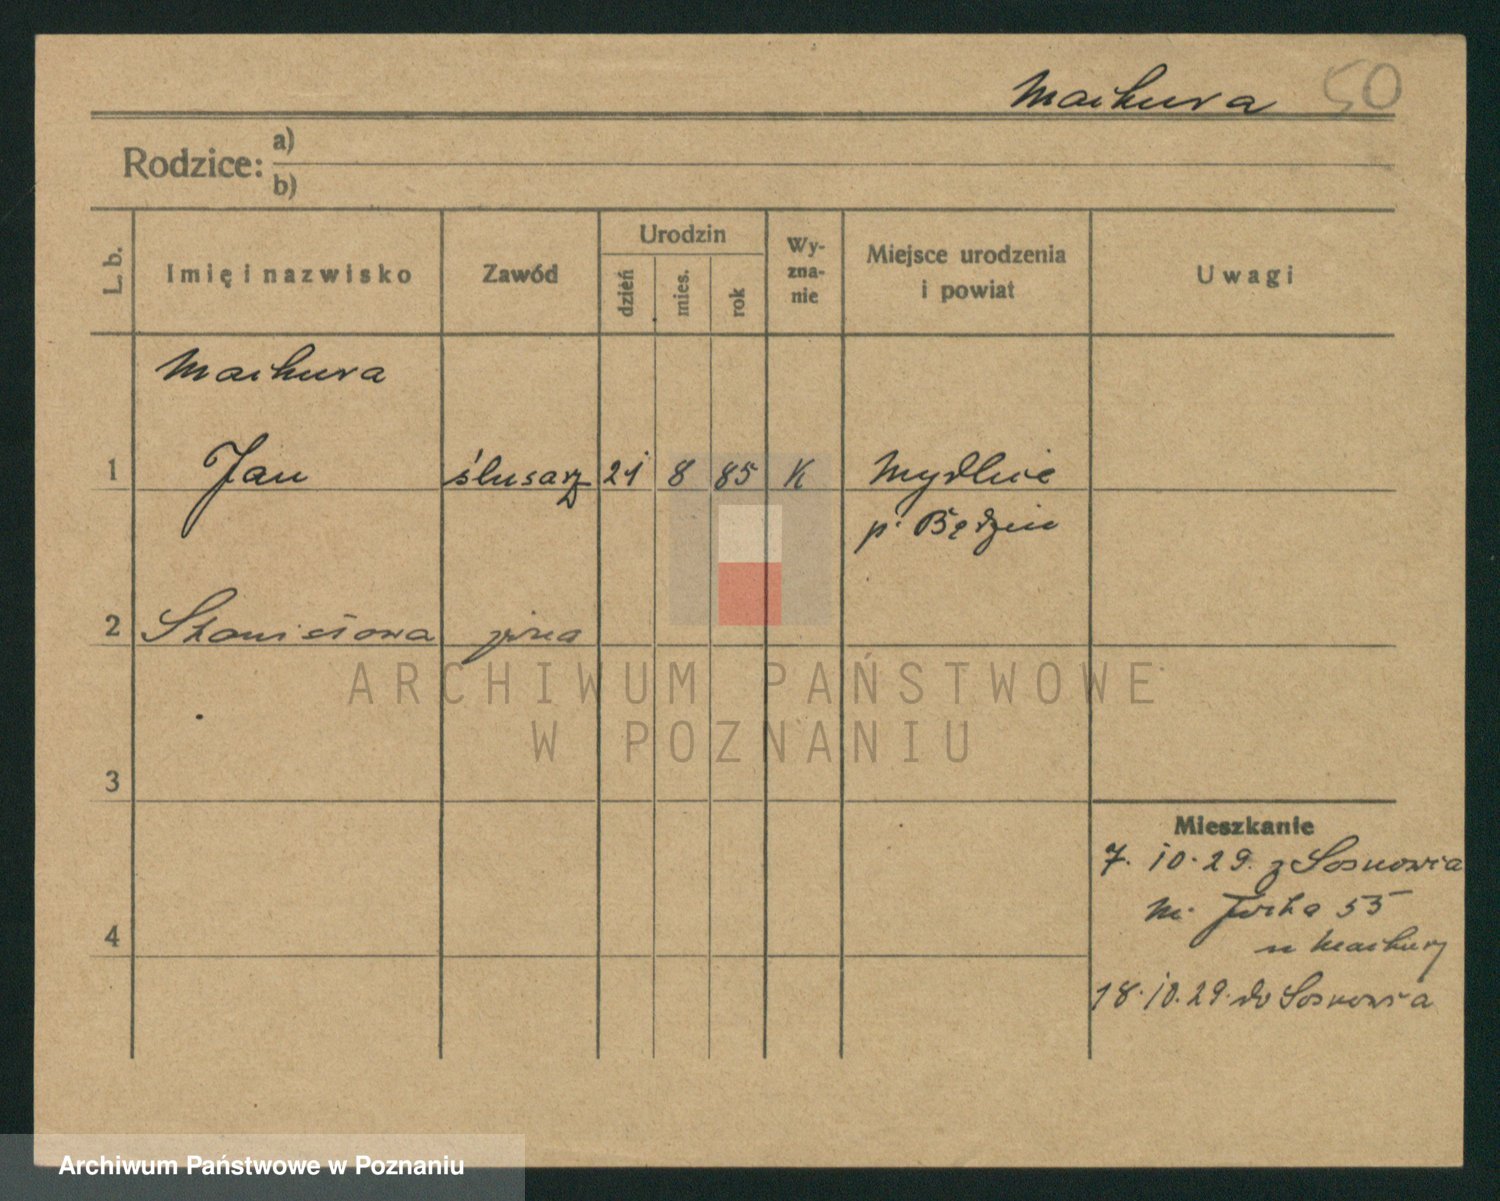 Maikura 50
Rodzice: a)
b)
L. b. Imię i nazwisko Zawód Urodzin dzień mies. rok Wy-zna-nie Miejsce urodzenia i powiat Uwagi
Maikura
1 Jan ślusarz 21 8 85 K Mydlice
p. Będzin
2 Stanisława żona
ARCHIWUM PAŃSTWOWE
W POZNANIU
3
Mieszkanie
7. 10. 29. z Sosnowca
55
4
u Maikury
18. 10. 29. do Sosnowca
Archiwum Państwowe w Poznaniu